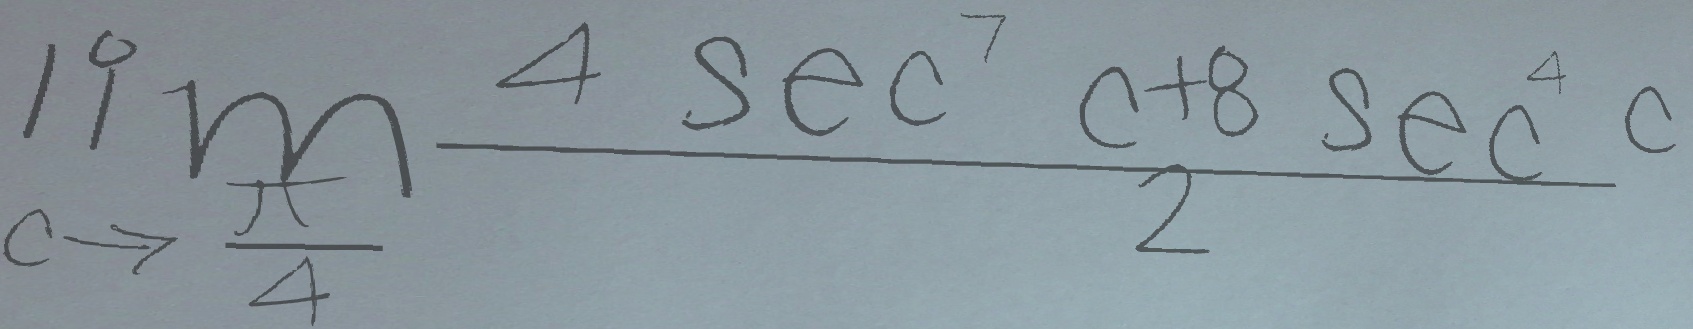 \lim_{c \to \frac{\pi}{4}} \frac{4 \sec^7 c + 8 \sec^4 c}{2}